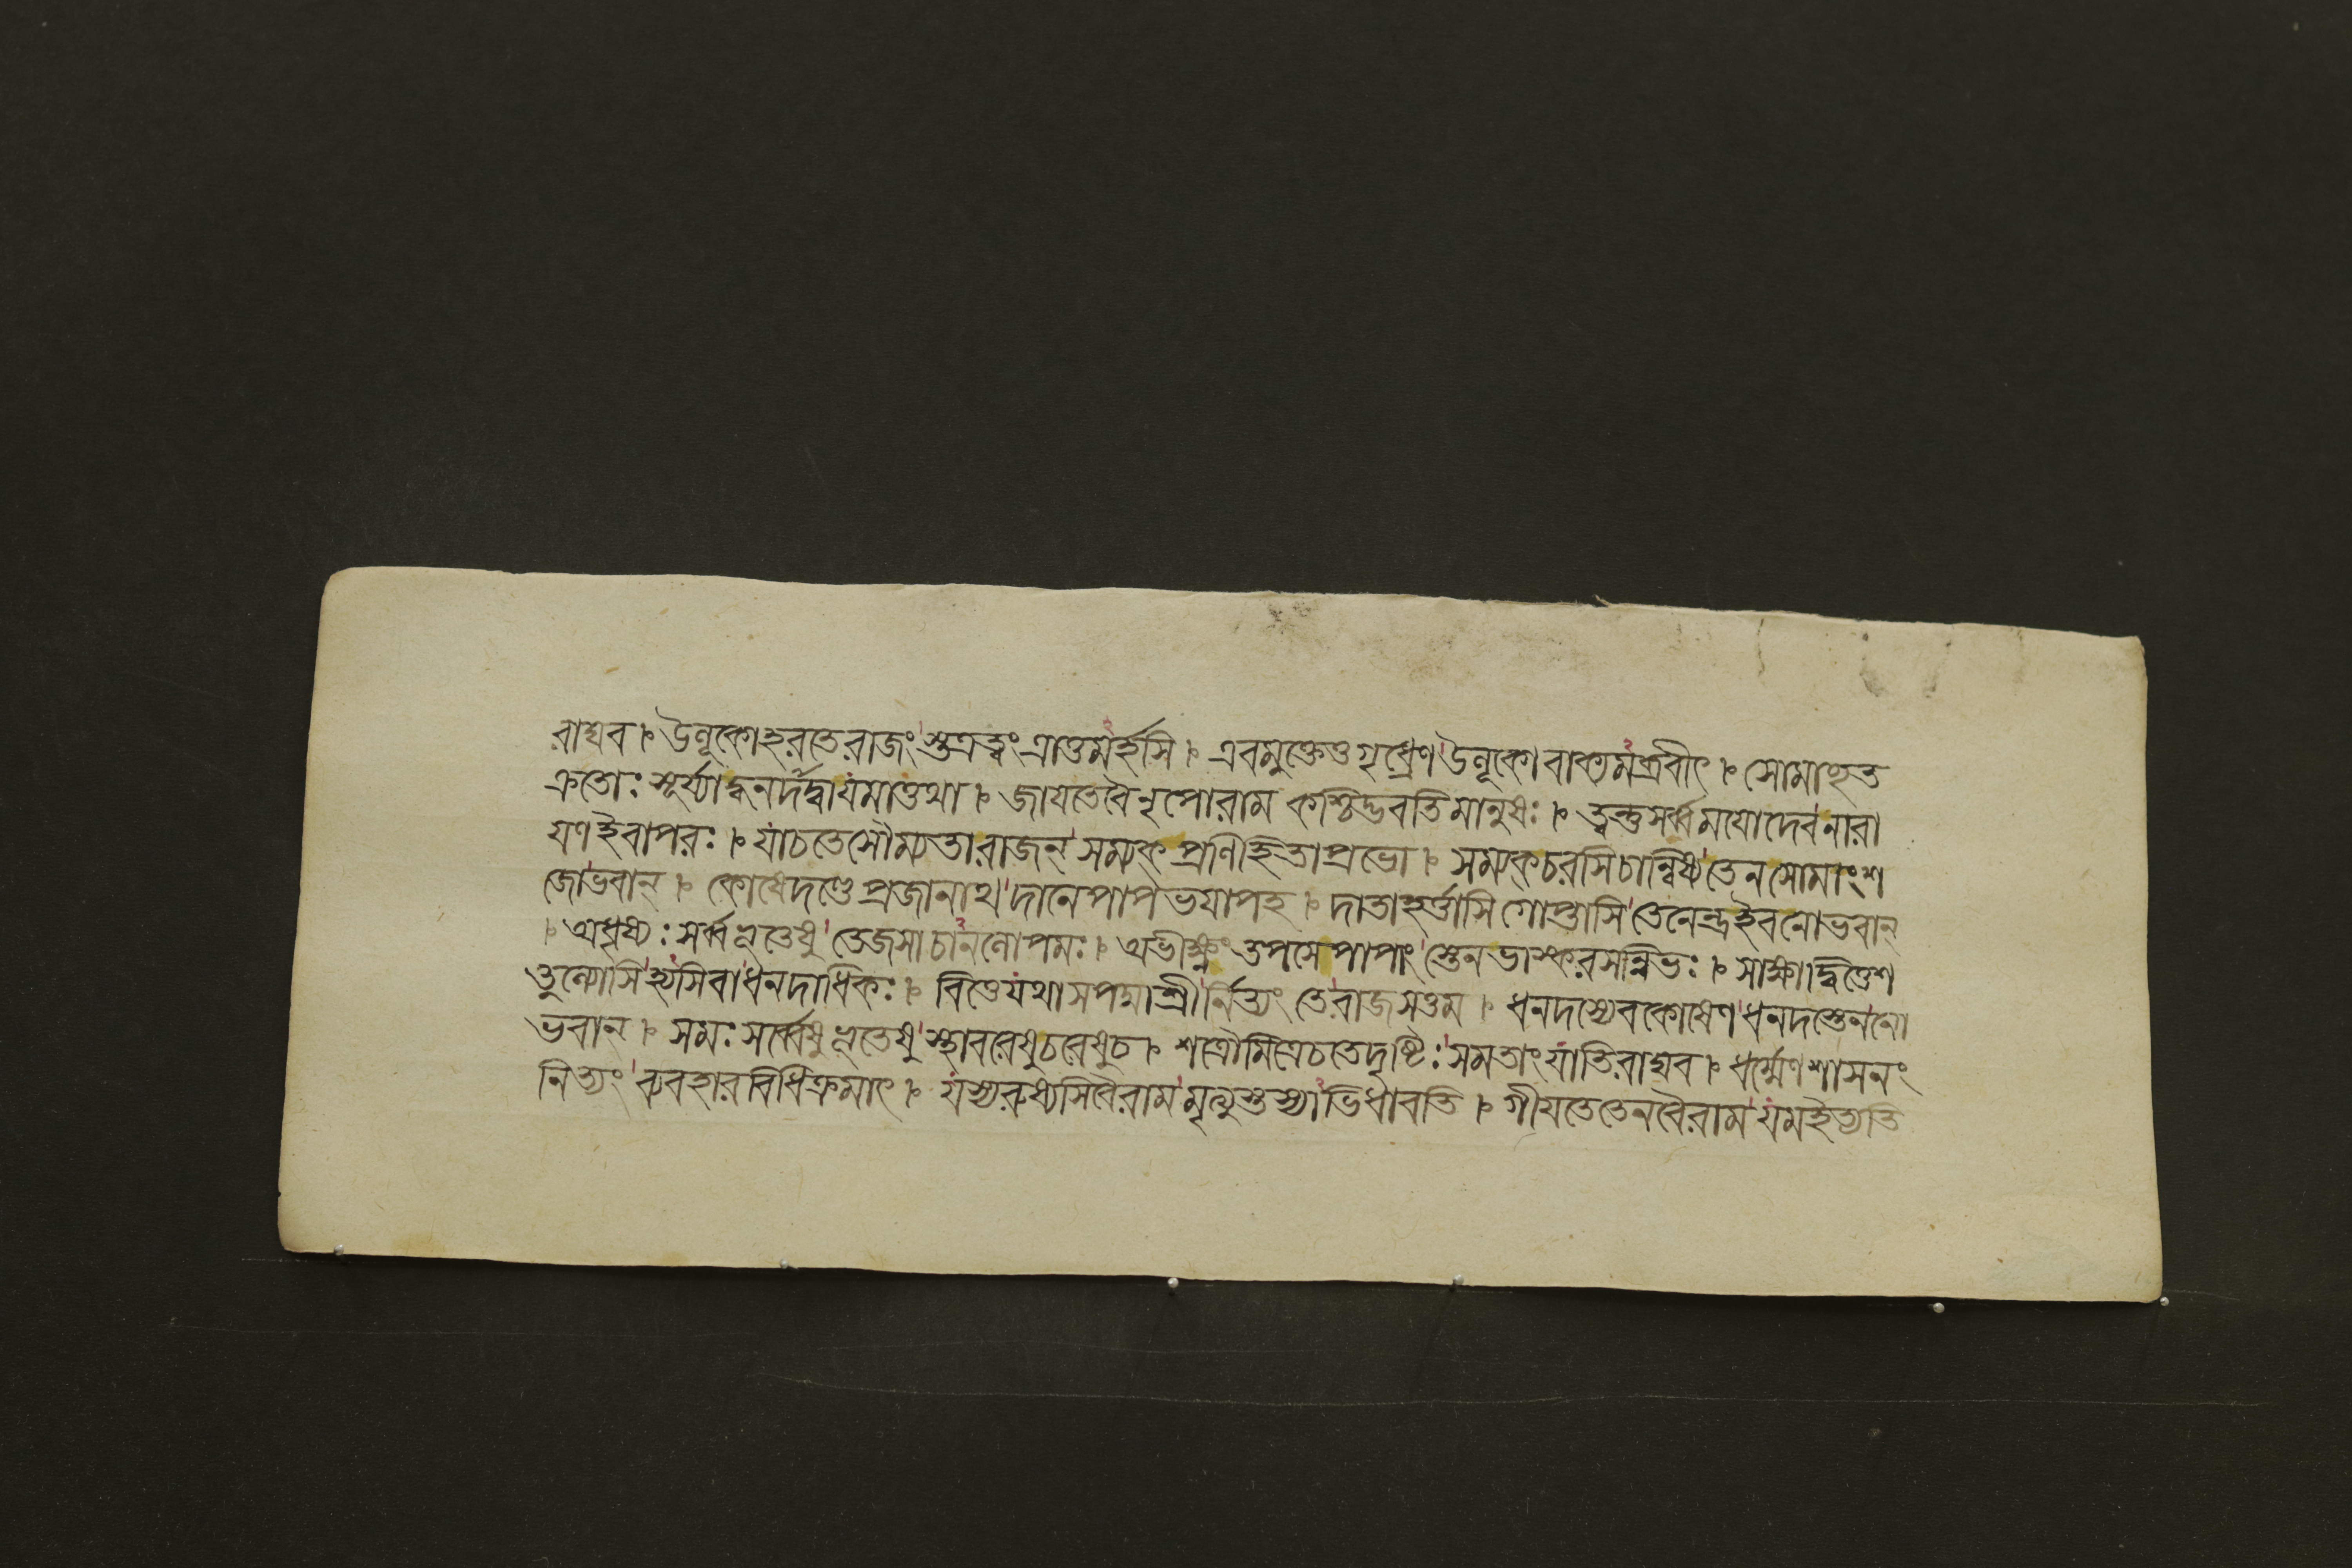 রাঘব ৷ উলূকোহরতে রাজংস্তত্রত্বং ত্রাতুমর্হসি ৷ এবমুক্তেতুগৃধ্রেণ উলূকোবাক্যমব্রবীৎ ৷ সোমাচ্ছত
ক্রতোঃ সূর্য্যাদ্ধনদাদ্বাযমাত্তথা ৷ জাযতেবৈনৃপোরাম কশ্চিদ্ভবতিমানুষঃ ৷ ত্বন্তুসর্ব্বমযোদেবনারা
যণইবাপরঃ ৷ যাচতেসৌম্যতারাজন্ সম্যক্প্রণিহিতাপ্রভো ৷ সম্যক্চরসিচান্বিষ্য তেনসোমাংশ
জোভবান্ ৷ কোধেদণ্ডেপ্রজানাথ দানেপাপভযাপহ ৷ দাতাহর্ত্তাসিগোপ্তাসি তেনেন্দ্রইবনোভবান্
৷ অধৃষ্যঃ সর্ব্বভূতেষু তেজসাচানলোপমঃ ৷ অভীক্ষ্ণং তপসেপাপাং স্তেনভাস্করসন্নিভঃ ৷ সাক্ষাদ্বিত্তেশ
তুল্যোসিহ্যসিবাধনদাধিকঃ ৷ বিত্তেযথাসপদ্মাশ্রীর্নিত্যং তেরাজসত্তম ৷ ধনদস্যেবকোষেণধনদস্তেননো
ভবান্ ৷ সমঃ সর্ব্বেষুভূতেষু স্থাবরেষুচরেষুচ ৷ শত্রৌমিত্রেচতেদৃষ্টিঃ সমতাংযাতিরাঘব ৷ ধর্ম্মেণশাসনং
নিত্যং ব্যবহারবিধিক্রমাৎ ৷ যস্যরুষ্যসিবৈরাম মৃত্যুস্তস্যাভিধাবতি ৷ গীযতেতেনবৈরাম যমইত্যতি